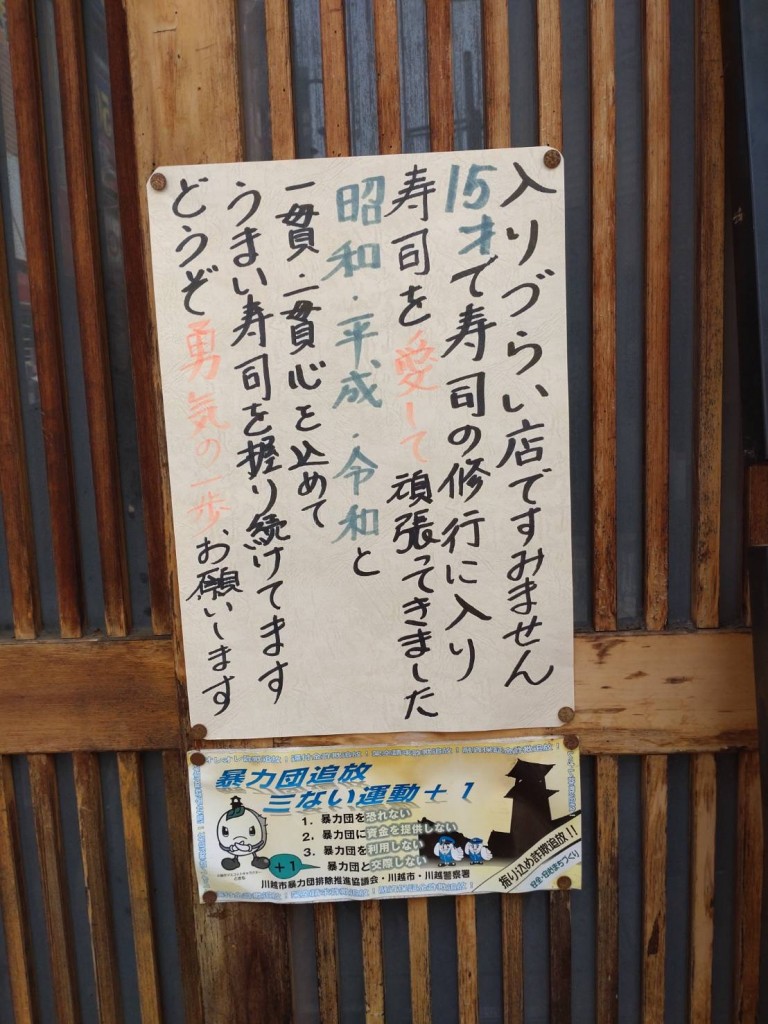 入りづらい店ですみません
15才で寿司の修行に入り
寿司を愛して頑張ってきました
昭和・平成・令和と
一貫・一貫心を込めて
うまい寿司を握り続けてます
どうぞ勇気の一歩お願いします
暴力団追放
三ない運動+1
1. 暴力団を恐れない
2. 暴力団に資金を提供しない
3. 暴力団を利用しない
+1 暴力団と交際しない
川越市暴力団排除推進協議会・川越市・川越警察署
振り込め詐欺追放!!